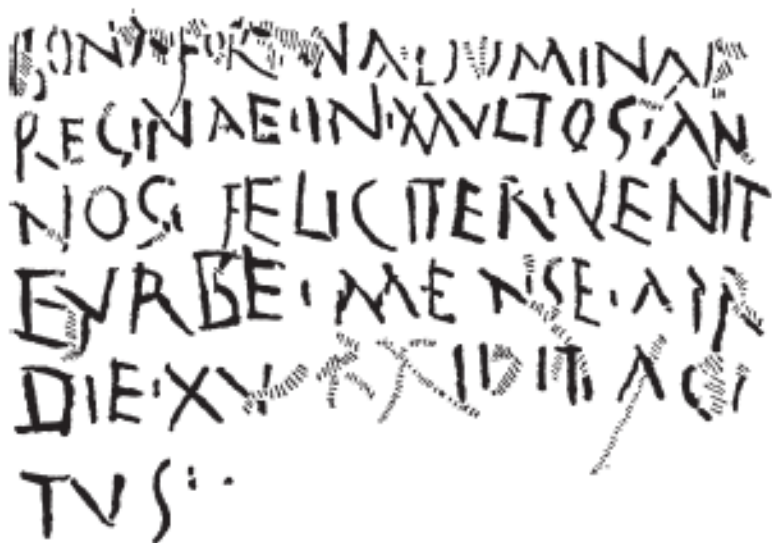 BONA FORTVNA DOMINAE
REGINAE·IN·MVLTOS·AN
NOS FELICITER·VENIT
E VRBE·MENSE·APR
DIE·XV VIDI TACI
TVS·